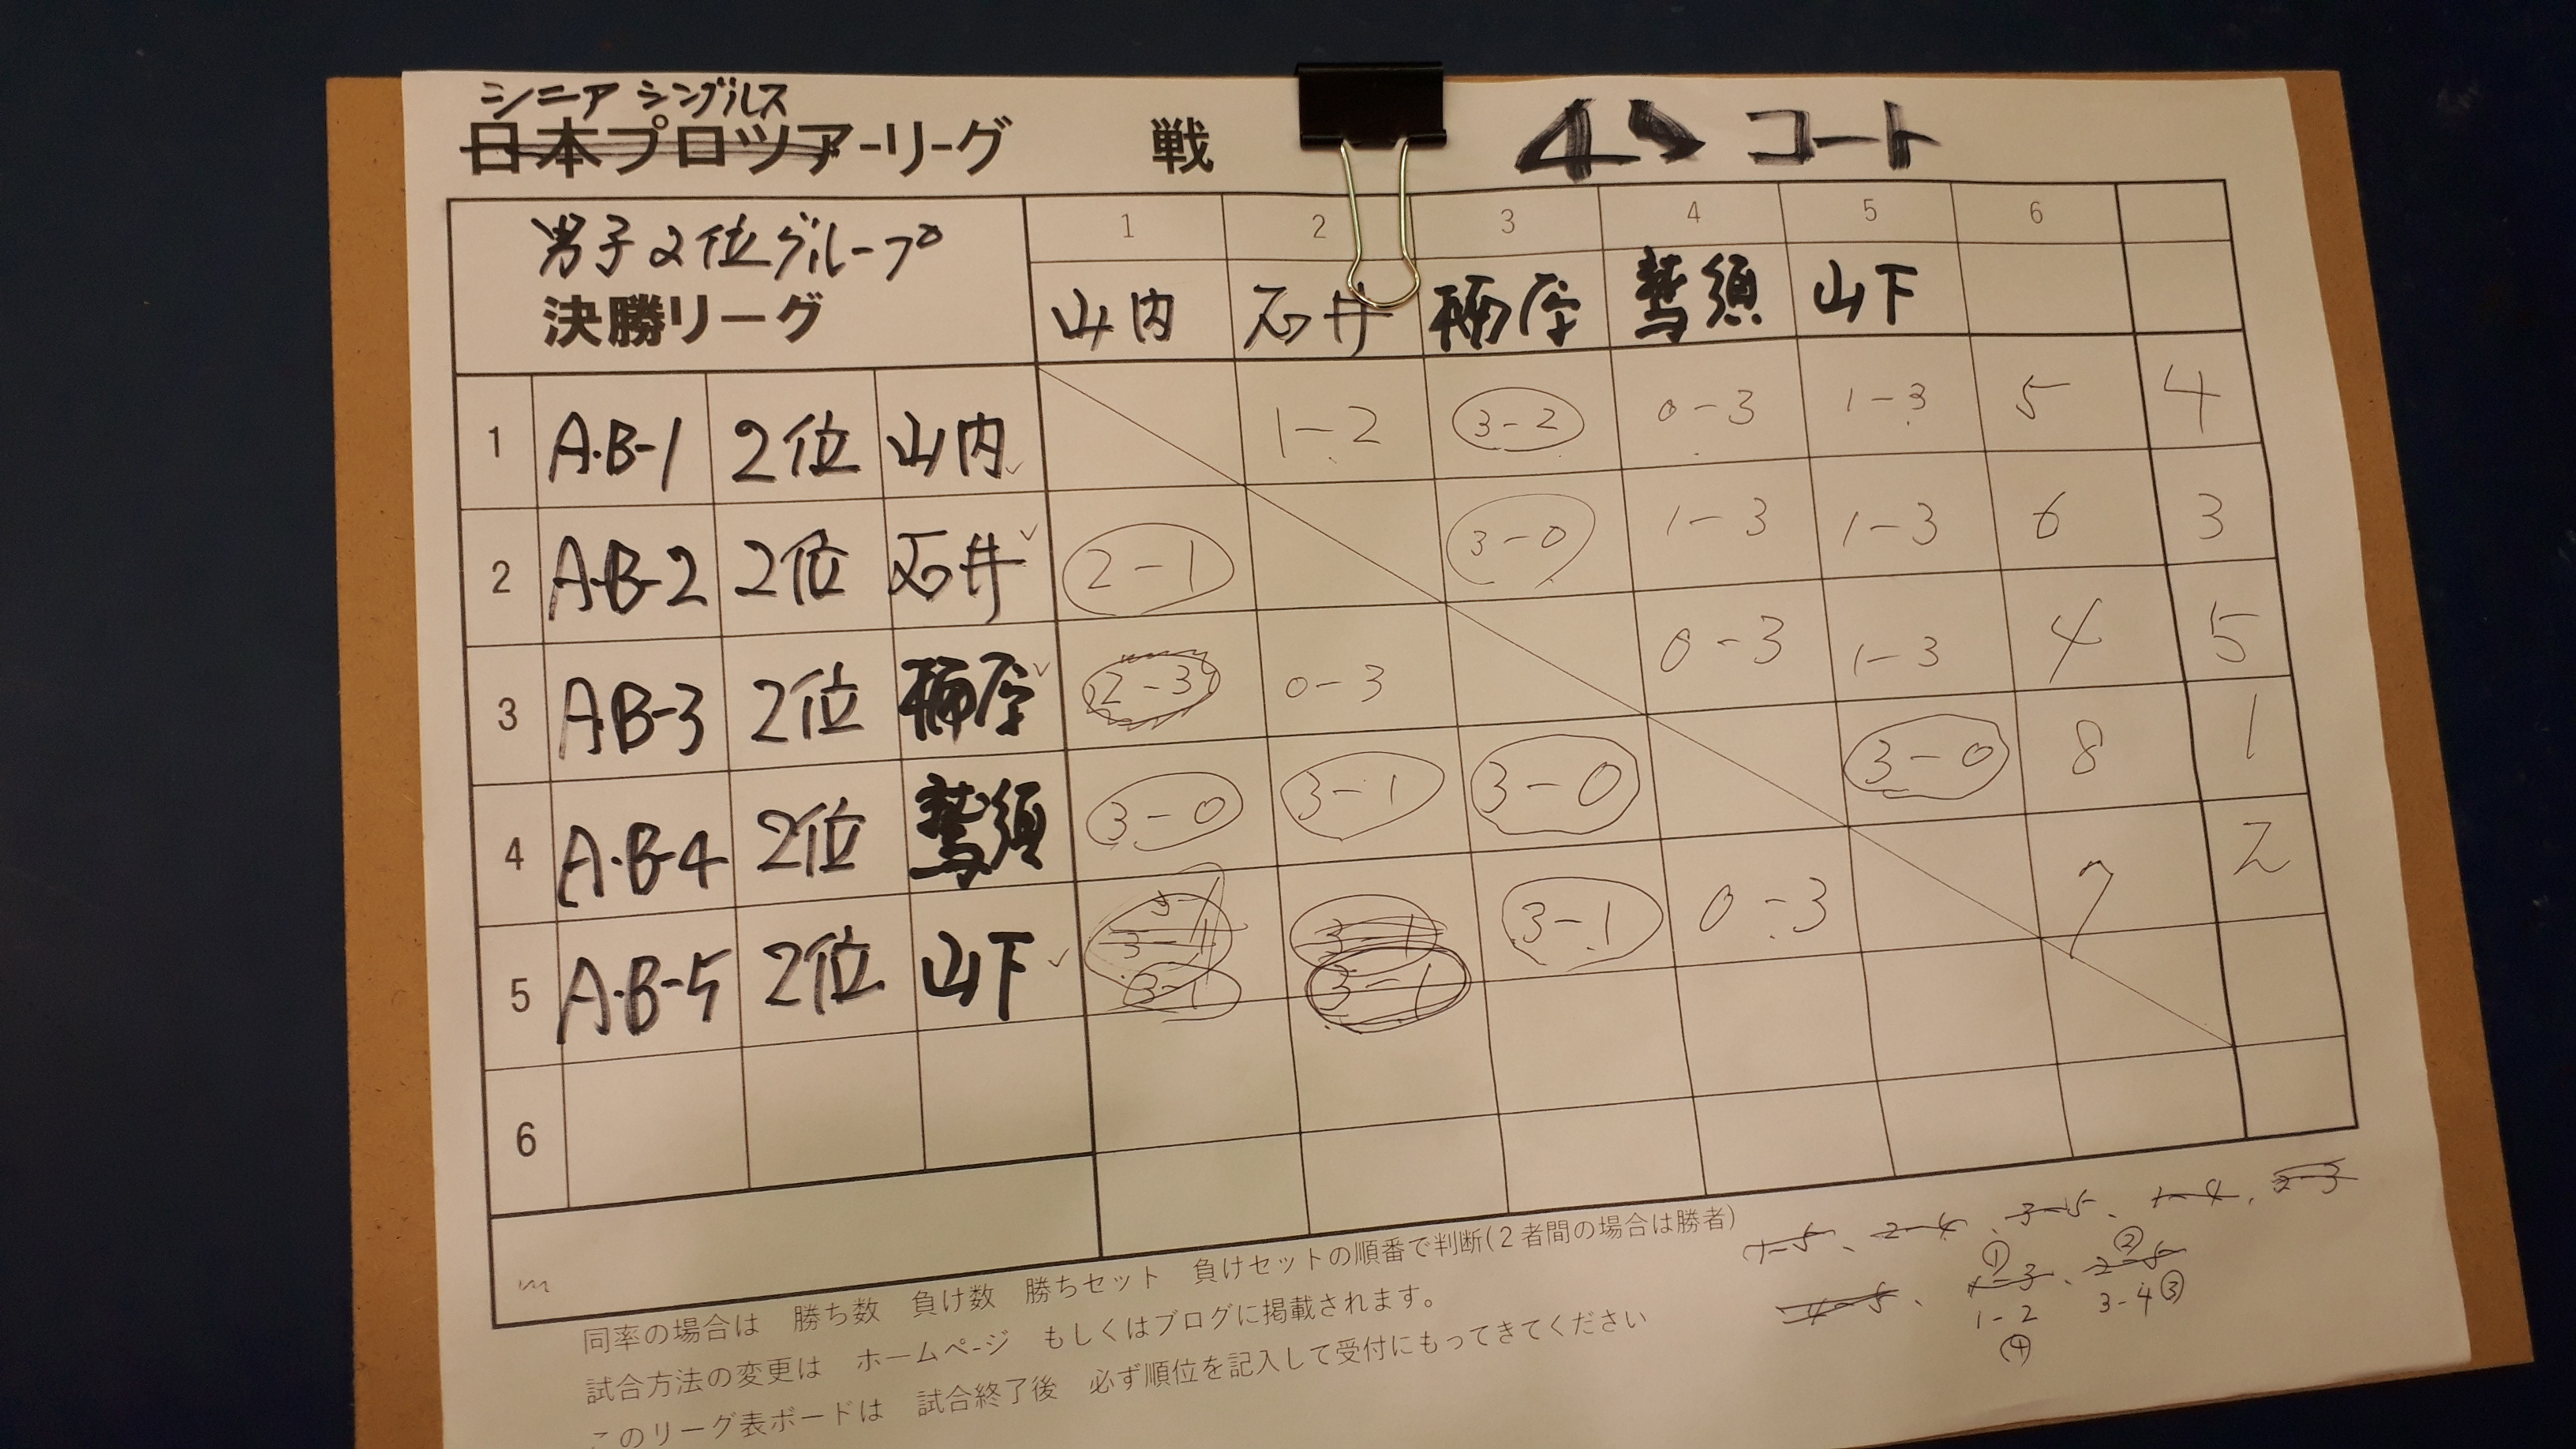 シニア シングルス
日本プロツアーリーグ 戦 4 コート
男子2位グループ
決勝リーグ
1 2 3 4 5 6
山内 石井 楠原 鷲須 山下
1 A.B-1 2位 山内 1-2 3-2 0-3 1-3 5 4
2 A-B-2 2位 石井 2-1 3-0 1-3 1-3 6 3
3 A.B-3 2位 2-3 0-3 0-3 1-3 4 5
4 A.B-4 2位 鷲須 3-0 3-1 3-0 3-0 8 1
5 A.B-5 2位 山下 3-1 3-1 3-1 0-3 7 2
3-1 3-1
6
同率の場合は 勝ち数 負け数 勝ちセット 負けセットの順番で判断(2者間の場合は勝者)
試合方法の変更は ホームページ もしくはブログに掲載されます。
このリーグ表ボードは 試合終了後 必ず順位を記入して受付にもってきてください
1-5、2-4、3-5、1-4、2-3
① ②
4-5、1-3、2-5
1-2 3-4 ③
④